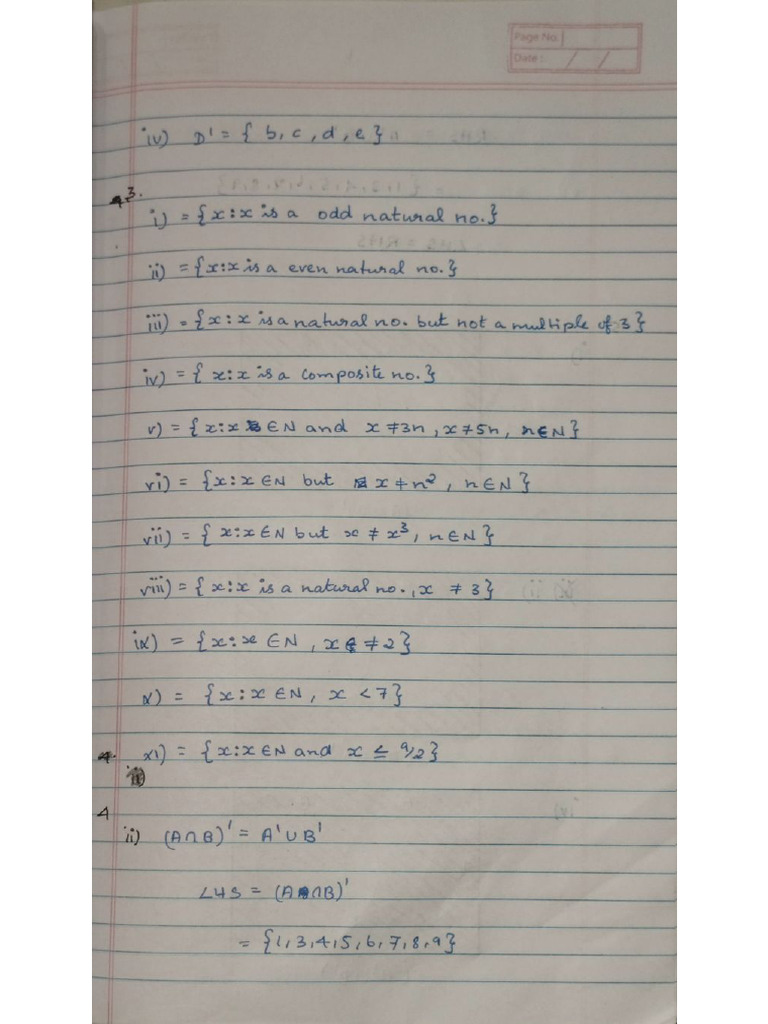 Page No.
Date : / /
iv) D' = { b, c, d, e }
3.
i) = {x:x is a odd natural no.}
ii) = {x:x is a even natural no.}
iii) = {x:x is a natural no. but not a multiple of 3}
iv) = { x:x is a composite no.}
v) = {x:x ∈N and x ≠3n, x≠5n, n∈N}
vi) = {x:x ∈N but x ≠ n², n∈N}
vii) = { x:x∈N but x ≠ x³, n∈N}
viii) = {x:x is a natural no., x ≠ 3}
ix) = {x:x ∈N, x ≠2}
x) = {x:x ∈N, x <7}
xi) = {x:x∈N and x ≤ 9/2}
4
ii) (A∩B)' = A'∪B'
LHS = (A∩B)'
= {1,3,4,5,6,7,8,9}